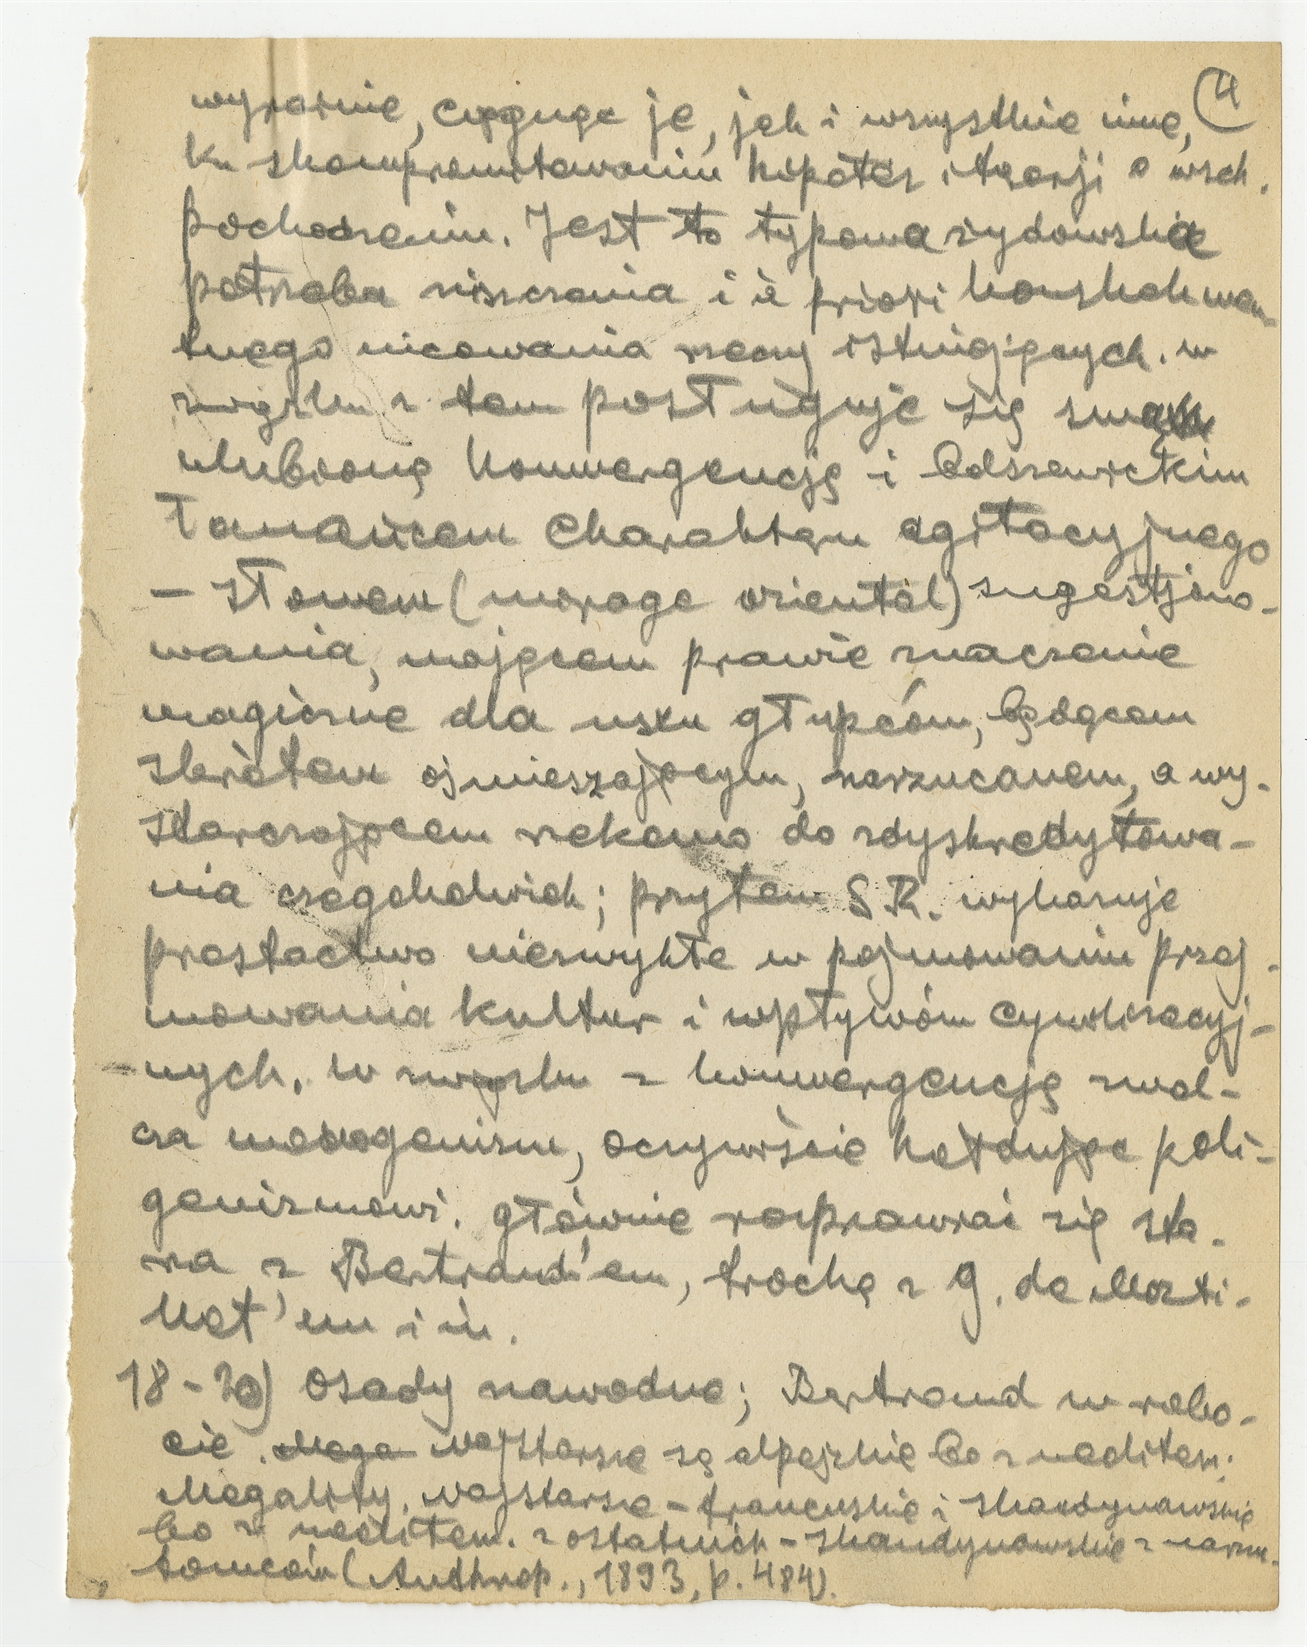 wyraźnie, ciągnąc je, jak i wszystkie inne, (4
ku skompromitowaniu hipotez i teorji o wsch.
pochodzeniu. Jest to typowa żydowska
potrzeba niszczenia i à priori konsekwen-
tnego nicowania rzeczy istniejących. w
związku z tem posługuje się swą
ulubioną konwergencją i bolszewickim
łamańcem charakteru agitacyjnego
– słowem (mirage oriental) sugestjono-
wania, mającem prawie znaczenie
magiczne dla uszu głupców, będącem
skrótem ośmieszającym, narzucanem, a wy-
starczającem rzekomo do zdyskredytowa-
nia czegokolwiek; przytem S.R. wykazuje
prostactwo niezwykłe w pojmowaniu przej-
mowania kultur i wpływów cywilizacyj-
-nych. w związku z konwergencją zwal-
cza monogenizm, oczywiście hołdując poli-
genizmowi. głównie rozprawiać się sta-
ra z Bertrand'em, trochę z G. de Morti-
llet'em i in.
18-20) Osady nawodne; Bertrand w robo-
cie. najstarsze są alpejskie bo z neolitem;
Megality. najstarsze – francuskie i skandynawskie
bo z neolitem. z ostatnich – skandynawskie z
(Anthrop., 1893, p. 484).